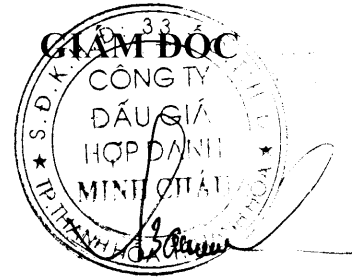 GIÁM ĐỐC
S.Đ.K.
33
CÔNG TY
ĐẤU GIÁ
HỢP DANH
MINH CHÂU
TP. THANH HÓA